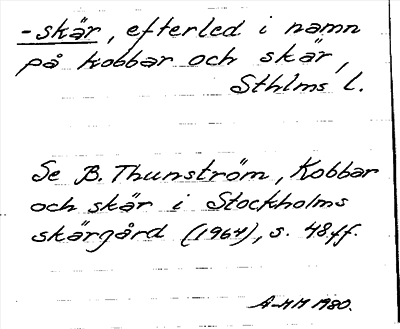 -skär, efterled i namn
på kobbar och skär,
Sthlms l.
Se B. Thunström, Kobbar
och skär i Stockholms
skärgård (1964), s. 48 ff.
A-MM 1980.